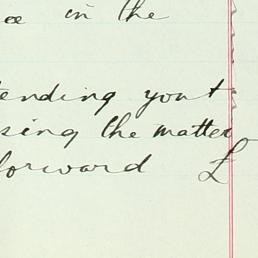 in the
tending your
sing the matter
forward £